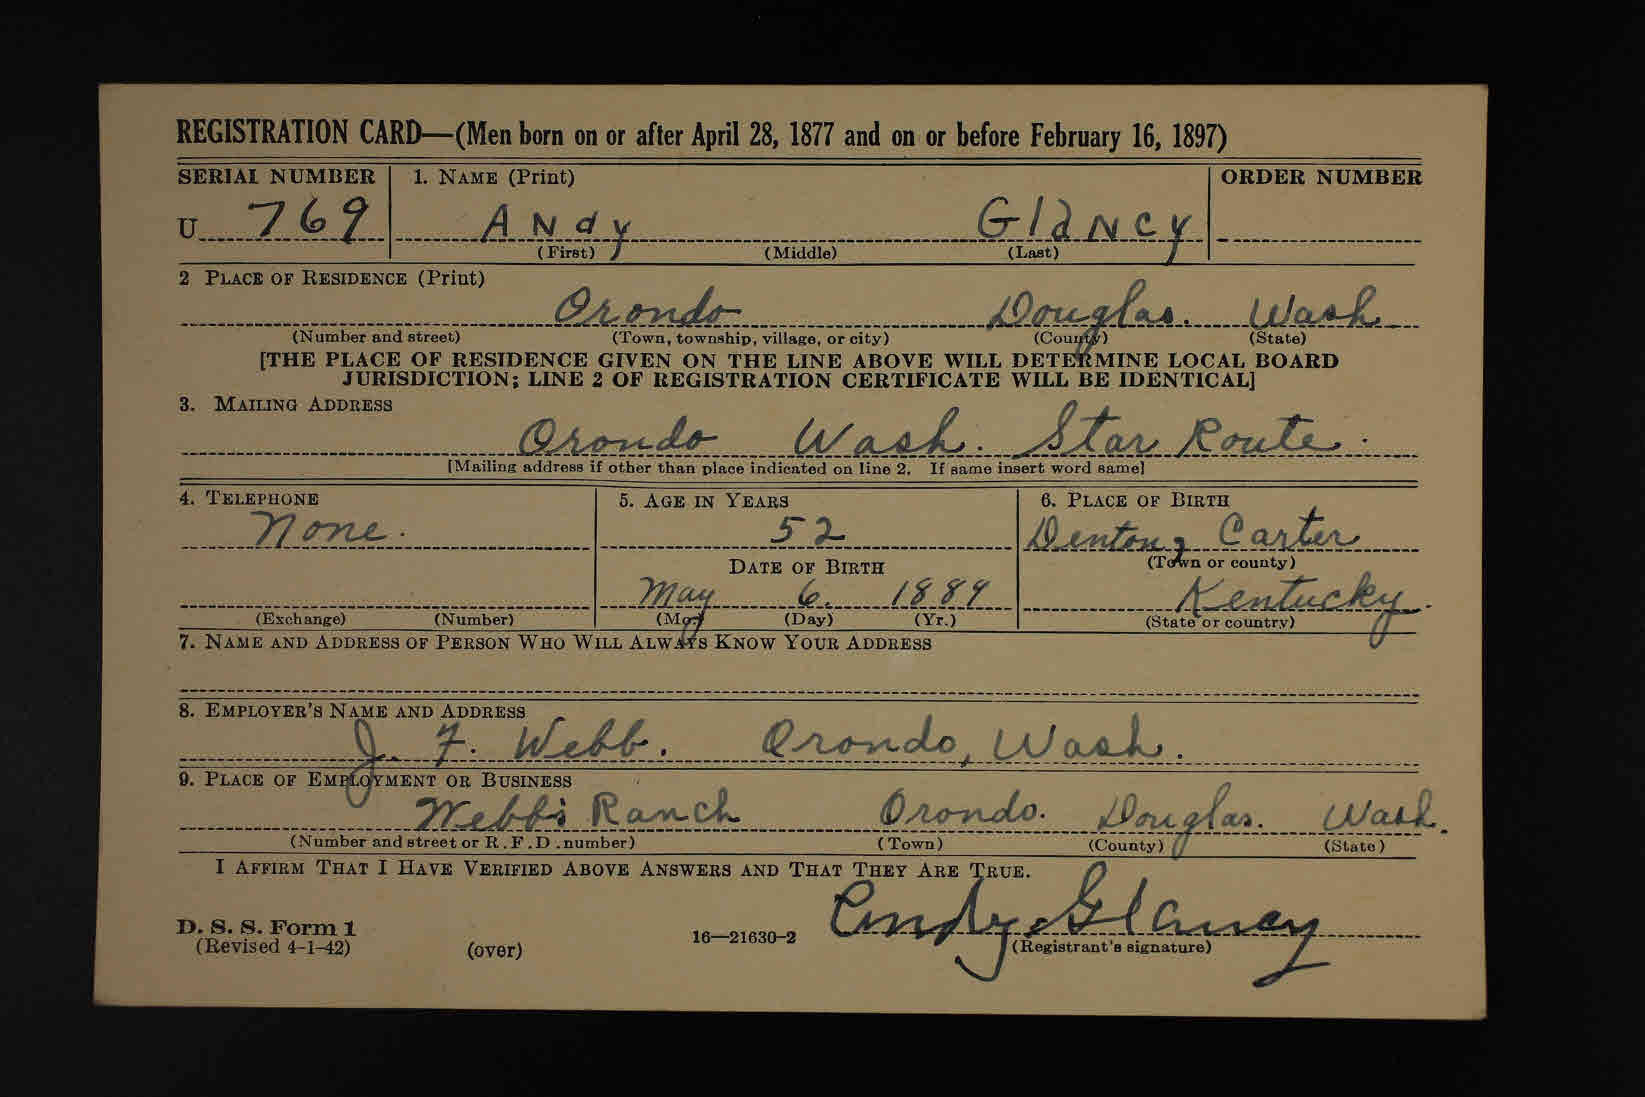 REGISTRATION CARD—(Men born on or after April 28, 1877 and on or before February 16, 1897)
SERIAL NUMBER 1. NAME (Print) ORDER NUMBER
U 769 Andy Glancy
(First) (Middle) (Last)
2 PLACE OF RESIDENCE (Print)
Orondo Douglas. Wash
(Number and street) (Town, township, village, or city) (County) (State)
[THE PLACE OF RESIDENCE GIVEN ON THE LINE ABOVE WILL DETERMINE LOCAL BOARD
JURISDICTION; LINE 2 OF REGISTRATION CERTIFICATE WILL BE IDENTICAL]
3. MAILING ADDRESS
Orondo Wash. Star Route.
[Mailing address if other than place indicated on line 2. If same insert word same]
4. TELEPHONE 5. AGE IN YEARS 6. PLACE OF BIRTH
None. 52 Denton, Carter
DATE OF BIRTH (Town or county)
May 6. 1889 Kentucky.
(Exchange) (Number) (Mo.) (Day) (Yr.) (State or country)
7. NAME AND ADDRESS OF PERSON WHO WILL ALWAYS KNOW YOUR ADDRESS
8. EMPLOYER'S NAME AND ADDRESS
J. F. Webb. Orondo, Wash.
9. PLACE OF EMPLOYMENT OR BUSINESS
Webb's Ranch Orondo. Douglas. Wash.
(Number and street or R.F.D. number) (Town) (County) (State)
I AFFIRM THAT I HAVE VERIFIED ABOVE ANSWERS AND THAT THEY ARE TRUE.
D. S. S. Form 1 Andy Glancy
(Revised 4-1-42) (over) 16—21630-2 (Registrant's signature)